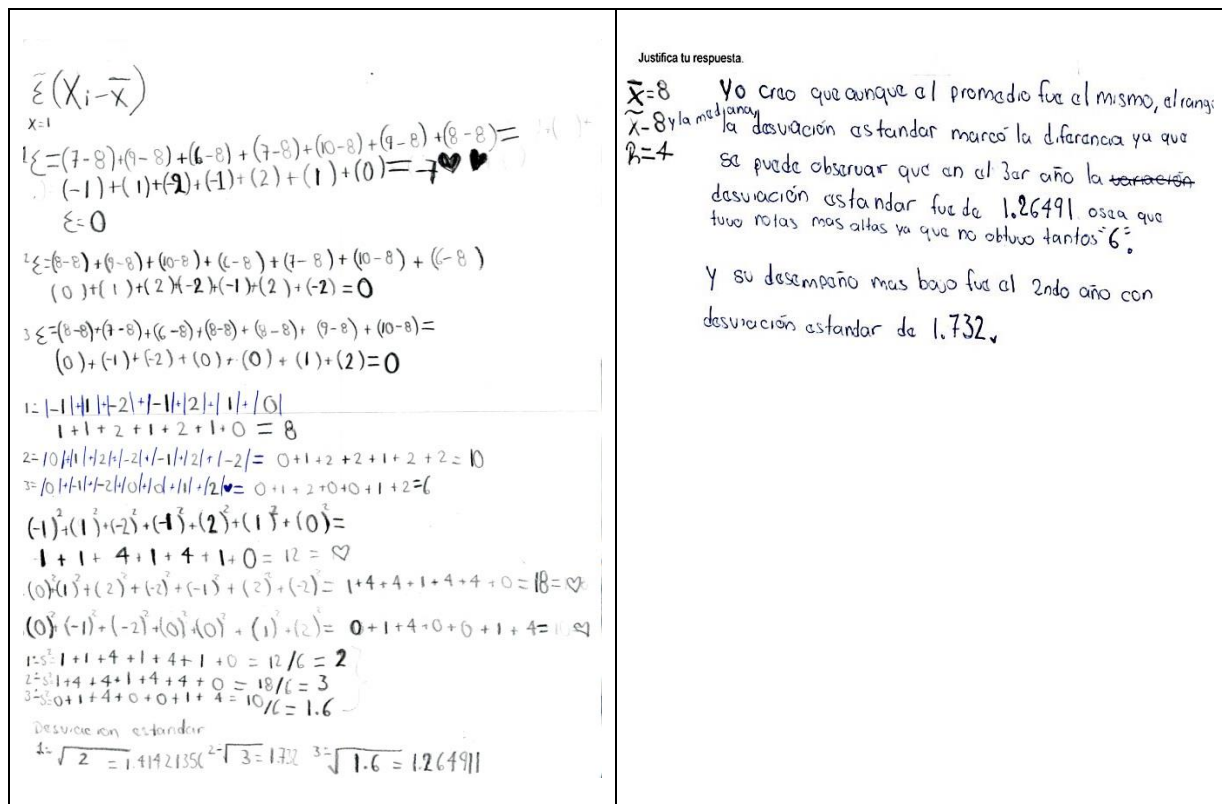 Σ(Xi-x̄)
x=1
1 Σ=(7-8)+(9-8)+(6-8)+(7-8)+(10-8)+(9-8)+(8-8)=
(-1)+(1)+(-2)+(-1)+(2)+(1)+(0)=-7♥♥
Σ=0
2 Σ=(8-8)+(9-8)+(10-8)+(6-8)+(7-8)+(10-8)+(6-8)
(0)+(1)+(2)+(-2)+(-1)+(2)+(-2)=0
3 Σ=(8-8)+(7-8)+(6-8)+(8-8)+(8-8)+(9-8)+(10-8)=
(0)+(-1)+(-2)+(0)+(0)+(1)+(2)=0
1=|-1|+|1|+|-2|+|-1|+|2|+|1|+|0|
1+1+2+1+2+1+0=8
2=|0|+|1|+|2|+|-2|+|-1|+|2|+|-2|= 0+1+2+2+1+2+2=10
3=|0|+|-1|+|-2|+|0|+|0|+|1|+|2|♥= 0+1+2+0+0+1+2=6
(-1)²+(1)²+(-2)²+(-1)²+(2)²+(1)²+(0)²=
1+1+4+1+4+1+0=12=♡
(0)²+(1)²+(2)²+(-2)²+(-1)²+(2)²+(-2)²= 1+4+4+1+4+4+0=18=♡
(0)²+(-1)²+(-2)²+(0)²+(0)²+(1)²+(2)²= 0+1+4+0+0+1+4=10♡
1=s²1+1+4+1+4+1+0=12/6=2
2=s²1+4+4+1+4+4+0=18/6=3
3=s²0+1+4+0+0+1+4=10/6=1.6
Desviación estandar
1=√2=1.4142135 2=√3=1.732 3=√1.6=1.264911
Justifica tu respuesta.
x̄=8 Yo creo que aunque el promedio fue el mismo, el rango
x̃-8 y la mediana, la desviación estandar marcó la diferencia ya que
R=4 se puede observar que en el 3er año la variación
desviación estandar fue de 1.26491 osea que
tuvo notas mas altas ya que no obtuvo tantos "6".
Y su desempeño mas bajo fue el 2ndo año con
desviación estandar de 1.732.